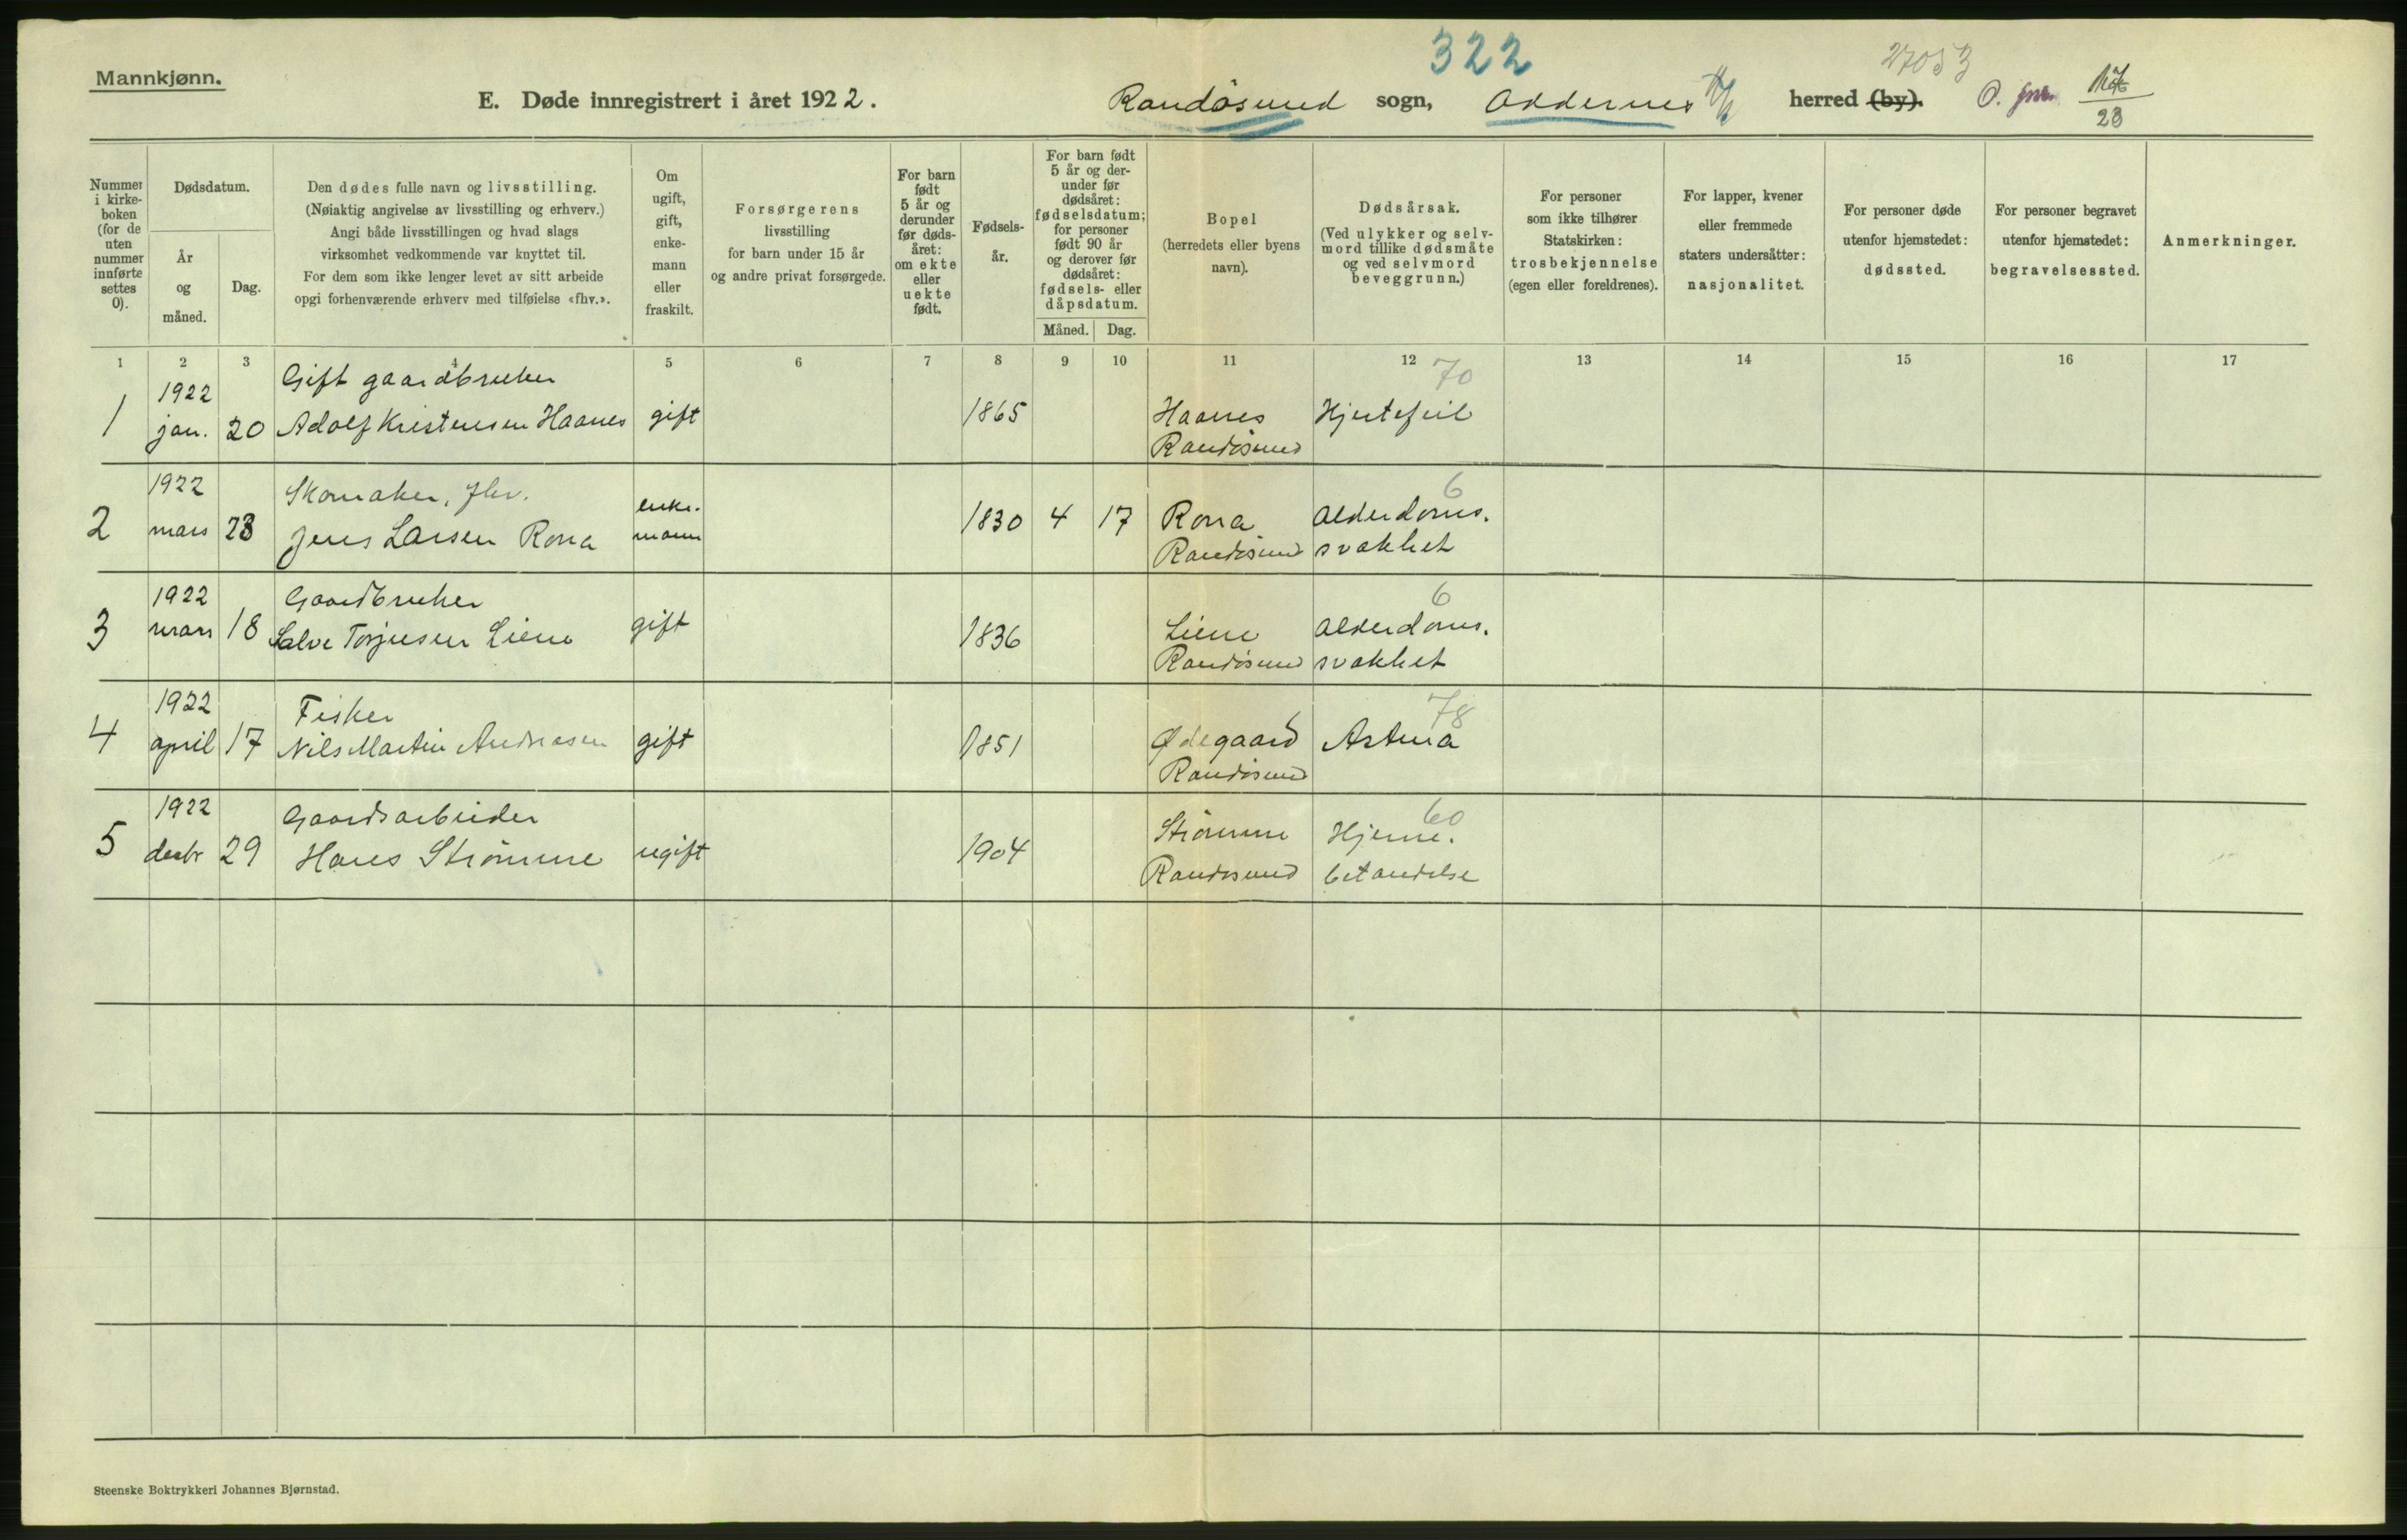 322
27053
Mannkjønn.
E. Døde innregistrert i året 1922.
Randøsund sogn, Oddernes herred (by).
23
Nummer i kirkeboken (for de uten nummer innførte settes 0).
Dødsdatum.
År og måned.
Dag.
Den dødes fulle navn og livsstilling.
(Nøiaktig angivelse av livsstilling og erhverv.)
Angi både livsstillingen og hvad slags
virksomhet vedkommende var knyttet til.
For dem som ikke lenger levet av sitt arbeide
opgi forhenværende erhverv med tilføielse «fhv.».
Om ugift, gift, enkemann eller fraskilt.
Forsørgerens
livsstilling
for barn under 15 år
og andre privat forsørgede.
For barn født 5 år og derunder før dødsåret: om ekte eller uekte født.
Fødselsår.
For barn født 5 år og derunder før dødsåret: fødselsdatum; for personer født 90 år og derover før dødsåret: fødsels- eller dåpsdatum.
Måned. Dag.
Bopel
(herredets eller byens
navn).
Dødsårsak.
(Ved ulykker og selvmord tillike dødsmåte og ved selvmord beveggrunn.)
For personer
som ikke tilhører
Statskirken:
trosbekjennelse
(egen eller foreldrenes).
For lapper, kvener
eller fremmede
staters undersåtter:
nasjonalitet.
For personer døde
utenfor hjemstedet:
dødssted.
For personer begravet
utenfor hjemstedet:
begravelsessted.
Anmerkninger.
1 2 3 4 5 6 7 8 9 10 11 12 13 14 15 16 17
Gift gaardbruker 70
1922
1 jan. 20 Adolf Kristensen Haanes gift 1865 Haanes Hjertefeil
Randøsund
1922 Skomaker, fhv. enke- 6
2 mars 23 Jens Larsen Rona mann 1830 4 17 Rona Alderdoms-
Randøsund svakhet
1922 Gaardbruker 6
3 mars 18 Salve Torjusen Liene gift 1836 Liene Alderdoms-
Randøsund svakhet
1922 Fisker 78
4 april 17 Nils Martin Andreasen gift 1851 Ødegaard Astma
Randøsund
1922 Gaardsarbeider 60
5 desbr 29 Hans Strømme ugift 1904 Strømme Hjerne-
Randøsund betændelse
Steenske Boktrykkeri Johannes Bjørnstad.